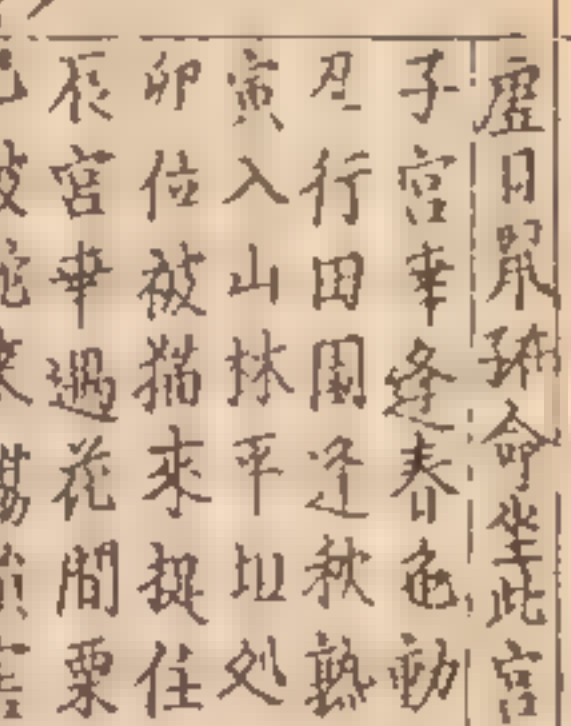 虚日鼠孫命坐此宮
子宮幸逢春色動
丑行田園逢秋熟
寅入山林平坦処
卯位被猫來捉住
辰宮幸遇花間粟